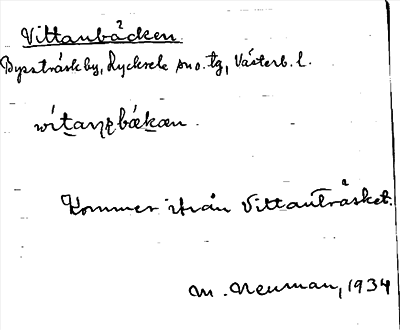 Vittanbäcken
Bysträsk by, Lycksele sn o. tg, Västerb. l.
Kommer ifrån Vittanträsket.
M. Neuman, 1934